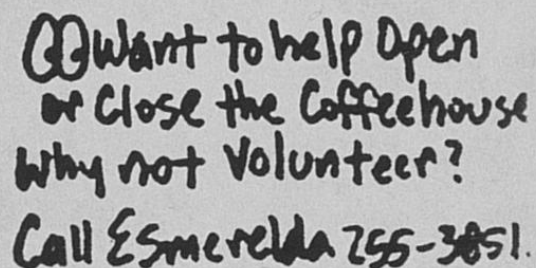 Want to help Open
or Close the Coffeehouse
Why not Volunteer?
Call Esmerelda 255-3851.